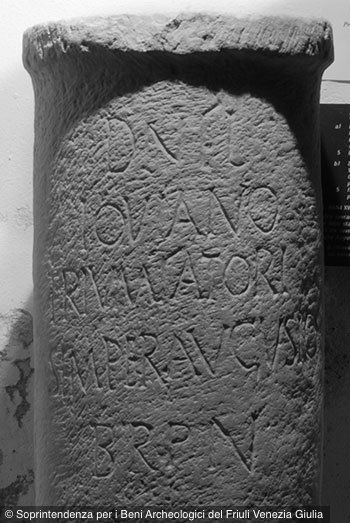 D N FL
IOVIANO
TRIVMFATORI
SEMPER AVGVSTO
B R P N
© Soprintendenza per i Beni Archeologici del Friuli Venezia Giulia